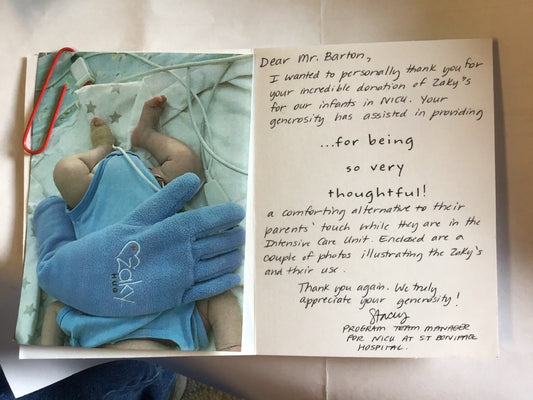 Zaky
HUG
Dear Mr. Barton,
I wanted to personally thank you for
your incredible donation of Zaky's
for our infants in NICU. Your
generosity has assisted in providing
...for being
so very
thoughtful!
a comforting alternative to their
parents' touch while they are in the
Intensive Care Unit. Enclosed are a
couple of photos illustrating the Zaky's
and their use.
Thank you again. We truly
appreciate your generosity!
Stacey
PROGRAM TEAM MANAGER
FOR NICU AT ST BONIFACE
HOSPITAL.